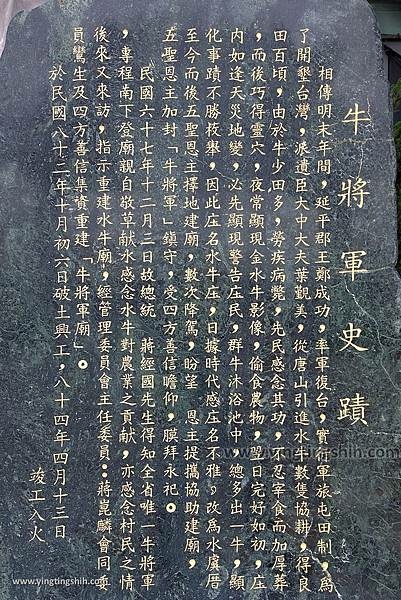 牛將軍史蹟
相傳明末年間，延平郡王鄭成功，率軍復台，實行軍旅屯田制，為
了開墾台灣，派遣臣大中大夫葉觀美，從唐山引進水牛數隻協耕，得良
田百頃，由於牛少田多，勞疾病斃，先民感念其功，不忍宰食而加厚葬
，而後巧得靈穴，夜常顯現金水牛影像，偷食農物，翌日完好如初，庄
內如逢天災地變，必先顯現警告庄民，群牛沐浴池中，總多出一牛，顯
化事蹟不勝枚舉，因此庄名水牛庄，日據時代感庄名不雅，改為水虞厝
至今而後五聖恩主擇地建廟，數次降駕，盼望 恩主提攜協助建廟，
五聖恩主加封「牛將軍」鎮守，受四方善信瞻仰，膜拜永祀。
民國六十七年十二月三日故總統 蔣經國先生得知全省唯一牛將軍
，專程南下登廟親自敬草献水感念水牛對農業之貢献，亦感念村民之情
後來又來訪，指示重建水牛廟，經管理委員會主任委員：蔣崑麟會同委
員鸞生及四方善信集資重建「牛將軍廟」。
於民國八十二年十月初六日破土興工，八十四年四月十三日
竣工入火
www.yingtingshih.com
www.yingtingshih.com